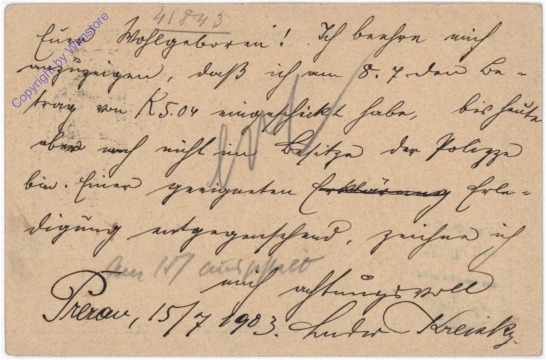 41843
Euer Wohlgeboren! Ich beehre mich
anzuzeigen, daß ich am 8.7 den Be-
trag von K 5.04 eingeschickt habe, bis heute
aber noch nicht im Besitze der Polizze
bin. Einer geeigneten Erklärung Erle-
digung entgegensehend, zeichne ich
am 15/7
hochachtungsvoll
Prerau, 15/7 1903. Kreisky
Copyright by WinStore